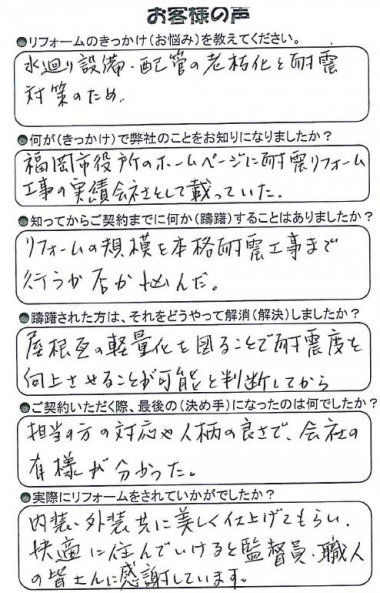 お客様の声
●リフォームのきっかけ(お悩み)を教えてください。
水廻り設備・配管の老朽化と耐震
対策のため.
●何が(きっかけ)で弊社のことをお知りになりましたか?
福岡市役所のホームページに耐震リフォーム
工事の実績会社として載っていた.
●知ってからご契約までに何か(躊躇)することはありましたか?
リフォームの規模を本格耐震工事まで
行うか否か悩んだ。
●躊躇された方は、それをどうやって解消(解決)しましたか?
屋根瓦の軽量化を図ることで耐震度を
向上させることが可能と判断してから
●ご契約いただく際、最後の(決め手)になったのは何でしたか?
担当の方の対応や人柄の良さで、会社の
有様が分かった。
●実際にリフォームをされていかがでしたか?
内装・外装共に美しく仕上げてもらい.
快適に住んでいけると監督員、職人
の皆さんに感謝しています。